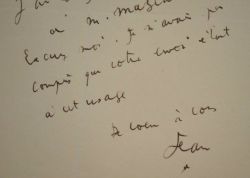 J'ai
à M. Maz
Excusez moi. Je n'avais pas
compris que votre envoi était
à cet usage
De coeur à vous
Jean
*